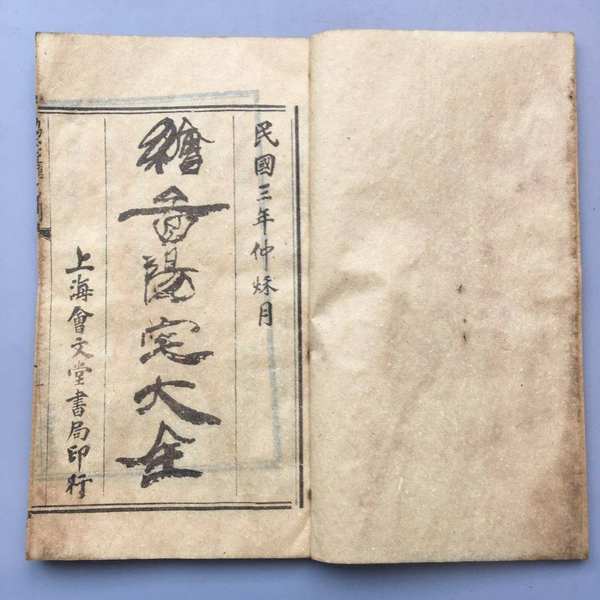 民國三年仲秌月
繪圖陽宅大全
上海會文堂書局印行